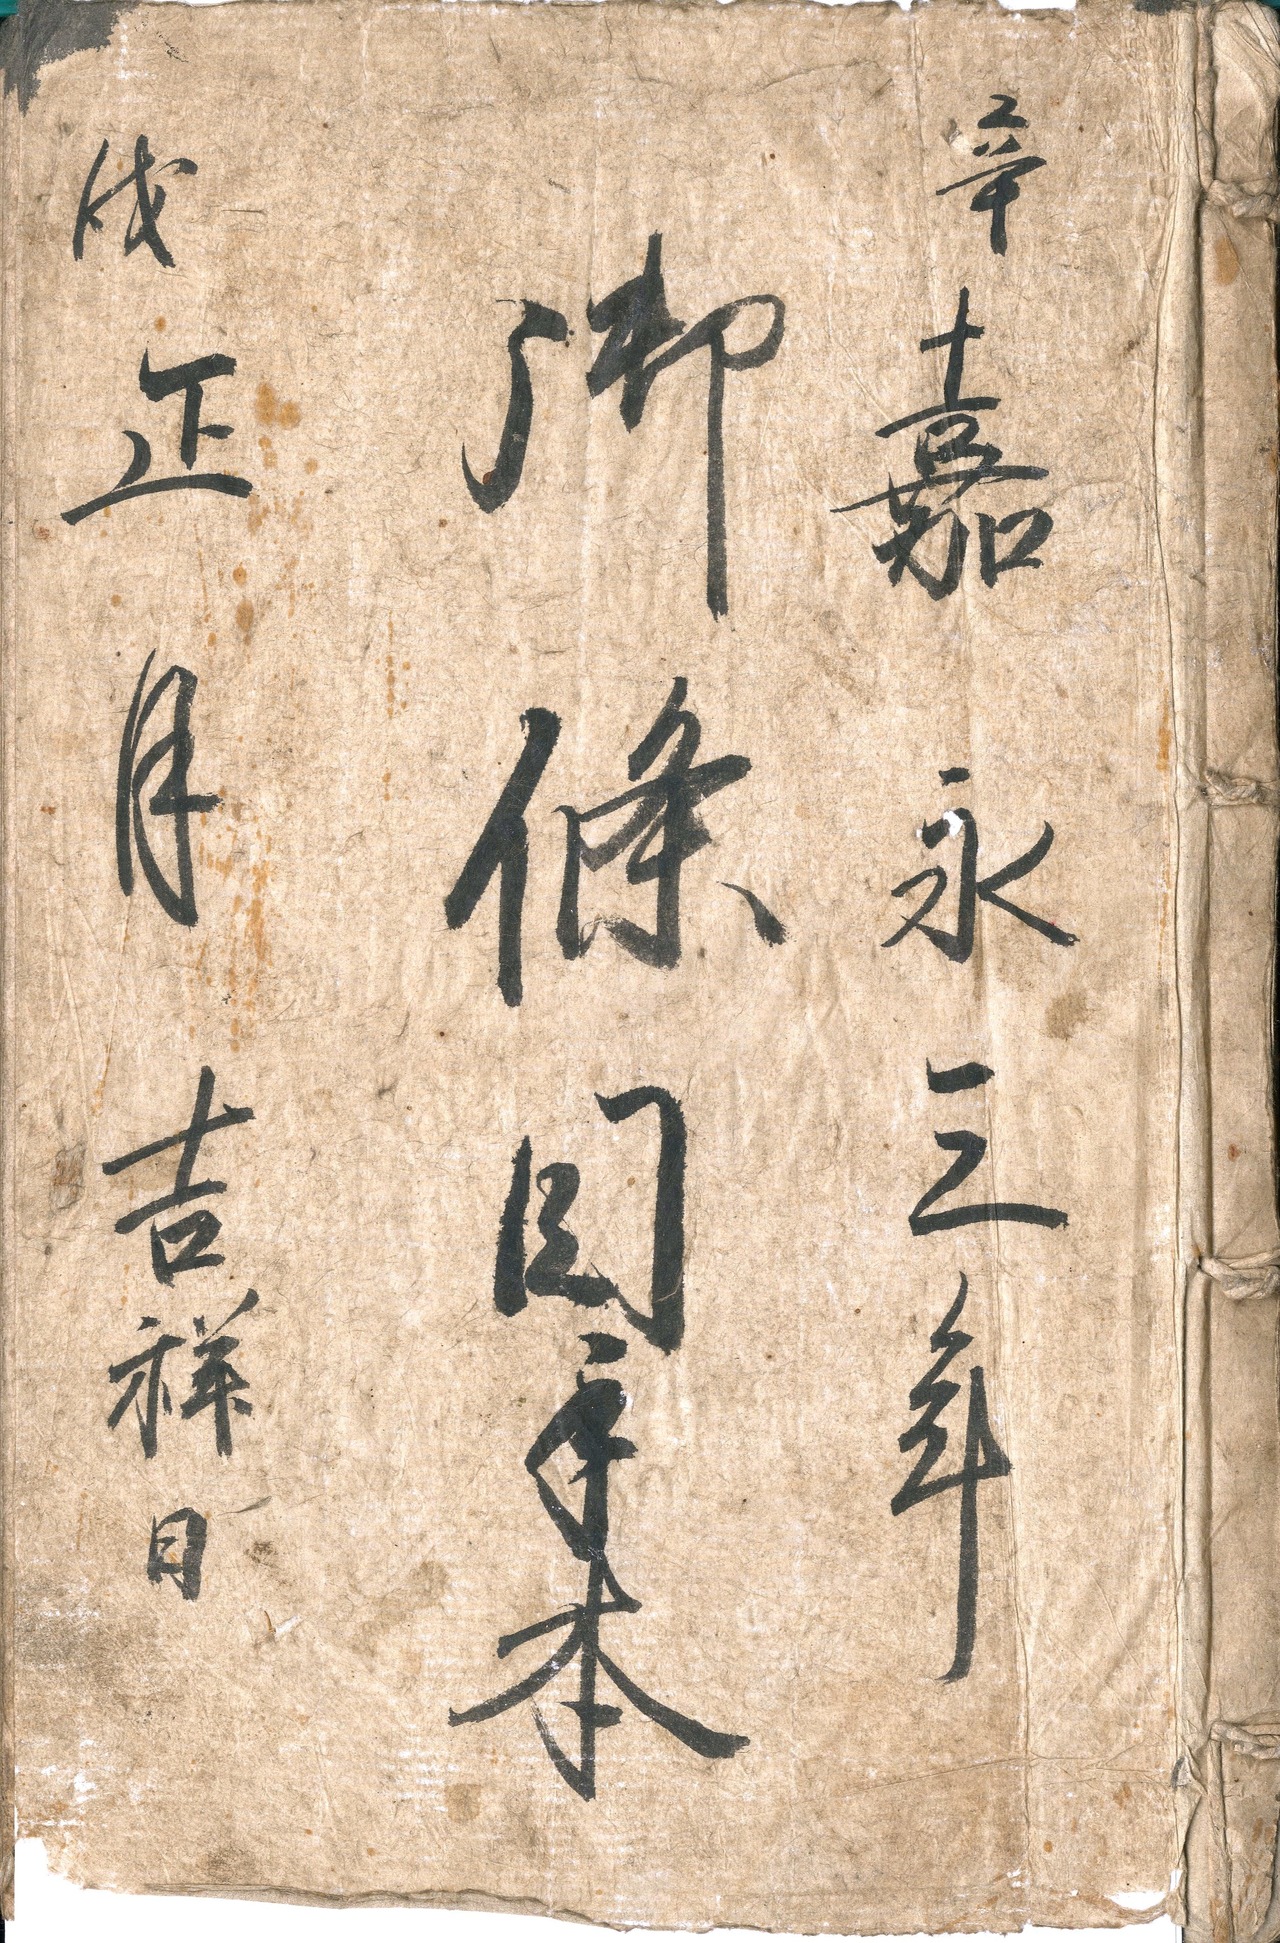 辛嘉永三年
御條目手本
戌正月吉祥日